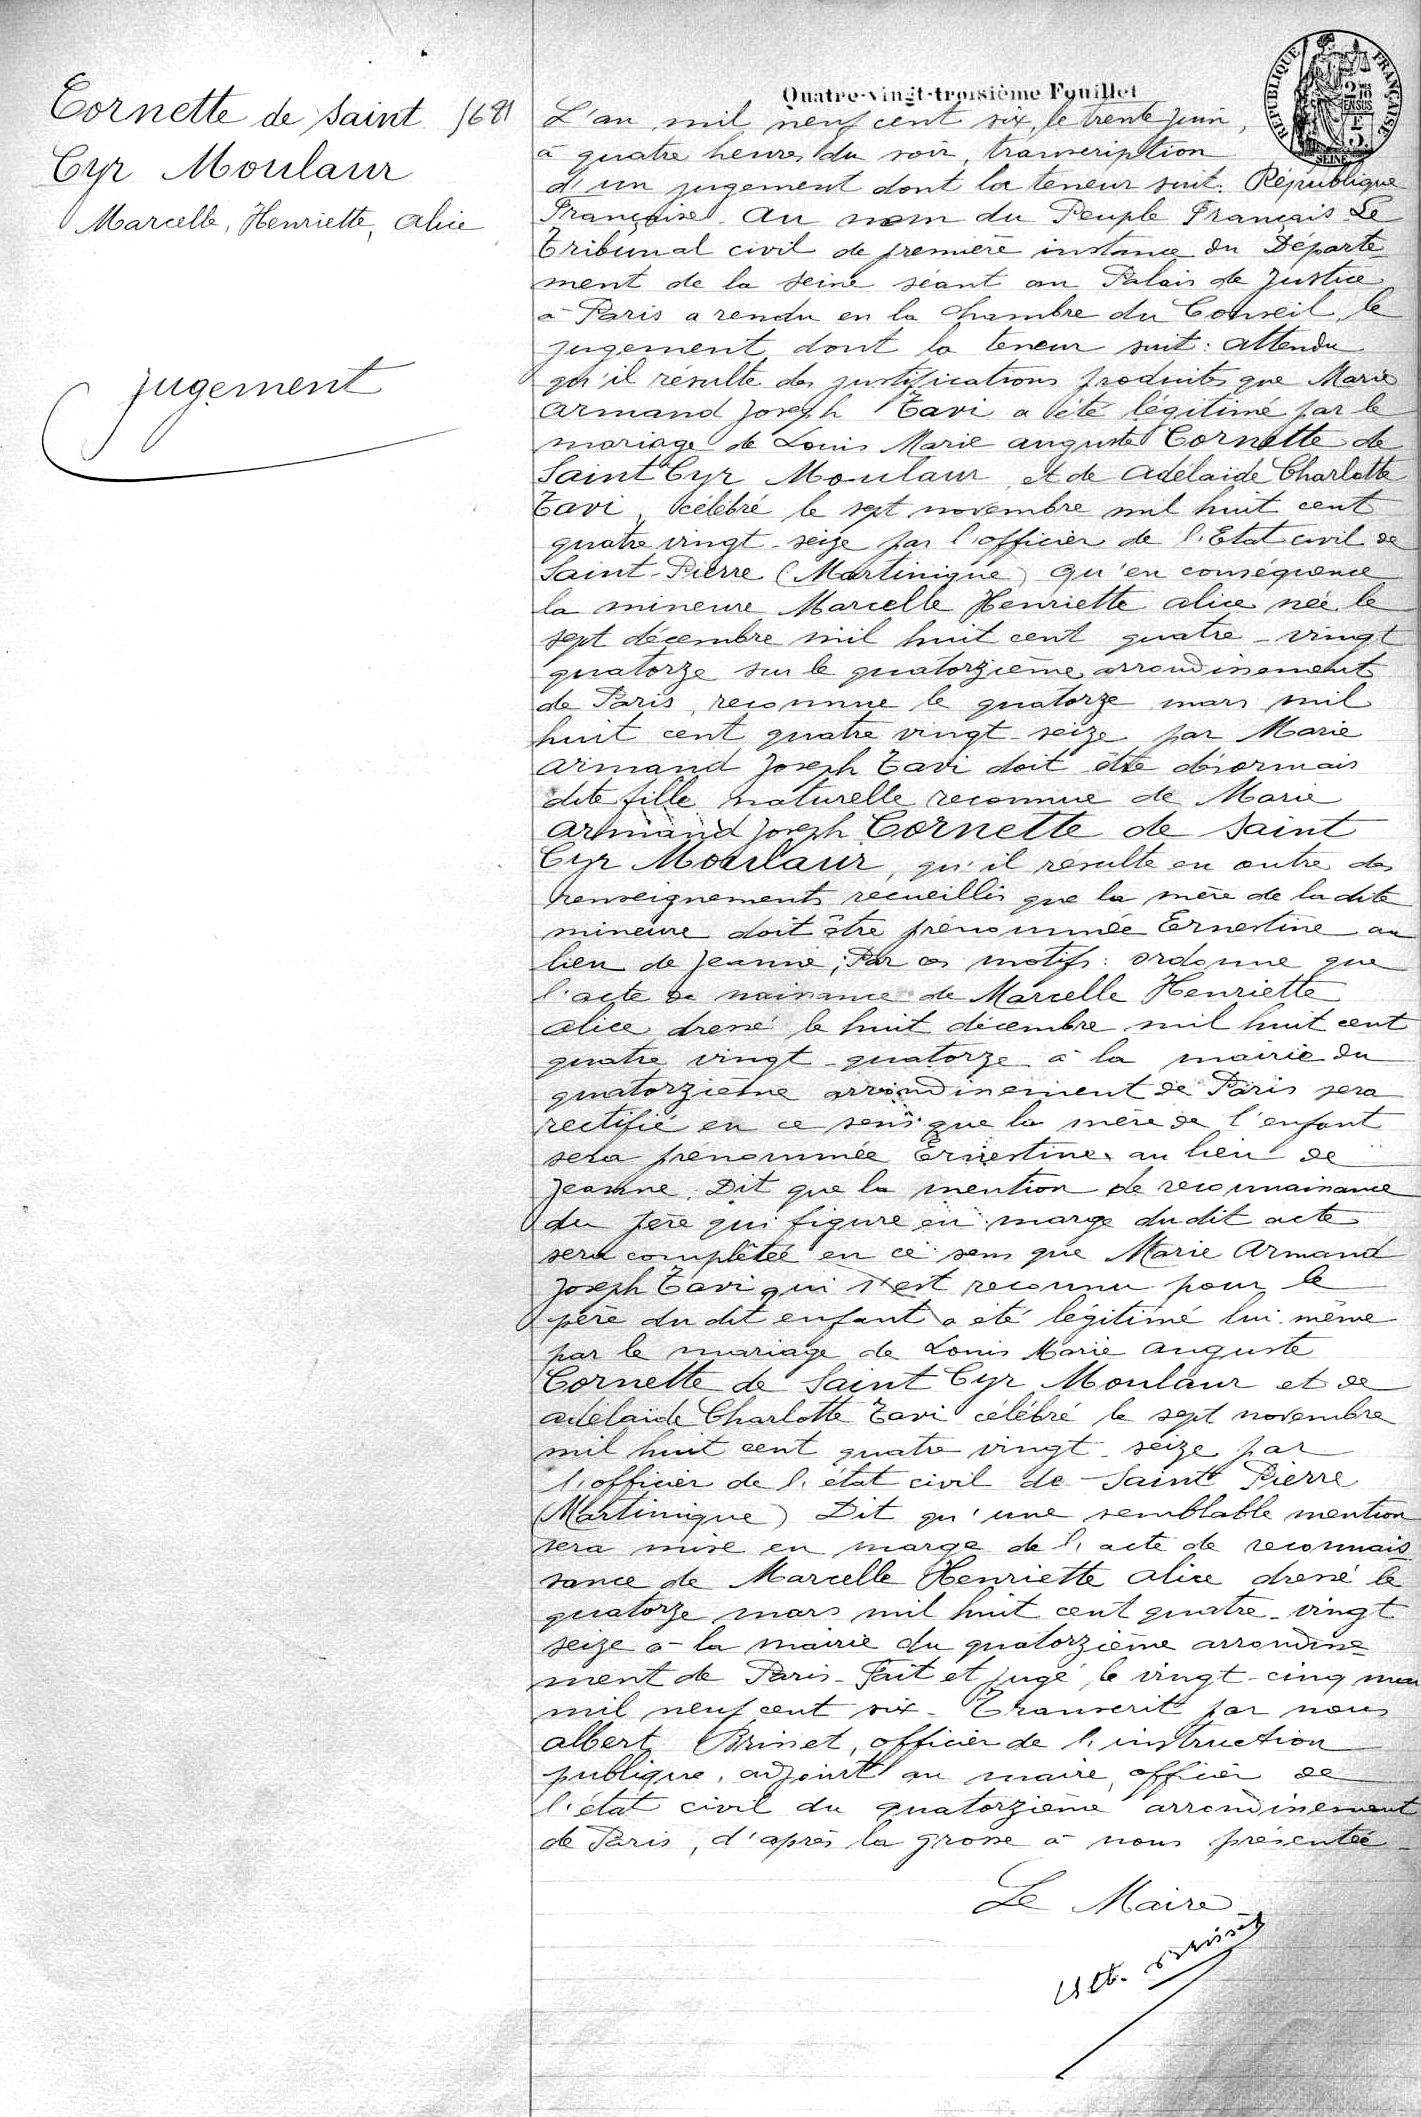 Cornette de Saint 1681
Cyr Moulaur
Marcelle, Henriette, Alice
Jugement
Quatre-vingt-troisième Feuillet
RÉPUBLIQUE FRANÇAISE
SEINE
L'an mil neuf cent six, le trente juin,
à quatre heures du soir, transcription
d'un jugement dont la teneur suit. République
Française. Au nom du Peuple Français. Le
Tribunal civil de première instance du Départe-
ment de la Seine séant au Palais de Justice
à Paris a rendu en la Chambre du Conseil, le
jugement dont la teneur suit: attendu
qu'il résulte des justifications produites que Marie
Armand Joseph Tavi a été légitimé par le
mariage de Louis Marie Auguste Cornette de
Saint Cyr Moulaur et de Adélaïde Charlotte
Tavi, célébré le sept novembre mil huit cent
quatre vingt-seize par l'officier de l'Etat civil de
Saint-Pierre (Martinique) qu'en conséquence
la mineure Marcelle Henriette Alice née le
sept décembre mil huit cent quatre-vingt
quatorze sur le quatorzième arrondissement
de Paris, reconnue le quatorze mars mil
huit cent quatre vingt-seize par Marie
Armand Joseph Tavi doit être désormais
dite fille naturelle reconnue de Marie
Armand Joseph Cornette de Saint
Cyr Moulaur, qu'il résulte en outre des
renseignements recueillis que la mère de ladite
mineure doit être prénommée Ernestine au
lieu de Jeanne; Par ces motifs: ordonne que
l'acte de naissance de Marcelle Henriette
Alice dressé le huit décembre mil huit cent
quatre vingt-quatorze à la mairie du
quatorzième arrondissement de Paris sera
rectifié en ce sens que la mère de l'enfant
sera prénommée Ernestine au lieu de
Jeanne. Dit que la mention de reconnaissance
du père qui figure en marge dudit acte
sera complétée en ce sens que Marie Armand
Joseph Tavi qui s'est reconnu pour le
père du dit enfant a été légitimé lui-même
par le mariage de Louis Marie Auguste
Cornette de Saint Cyr Moulaur et de
Adélaïde Charlotte Tavi célébré le sept novembre
mil huit cent quatre vingt-seize par
l'officier de l'état civil de Saint Pierre
(Martinique) Dit qu'une semblable mention
sera mise en marge de l'acte de reconnais-
sance de Marcelle Henriette Alice dressé le
quatorze mars mil huit cent quatre-vingt
seize à la mairie du quatorzième arrondisse-
ment de Paris. Fait et jugé, le vingt-cinq mai
mil neuf cent six. Transcrit par nous
Albert Brisset, officier de l'instruction
publique, adjoint au maire, officier de
l'état civil du quatorzième arrondissement
de Paris, d'après la grosse à nous présentée.
Le Maire
Alb. Brisset